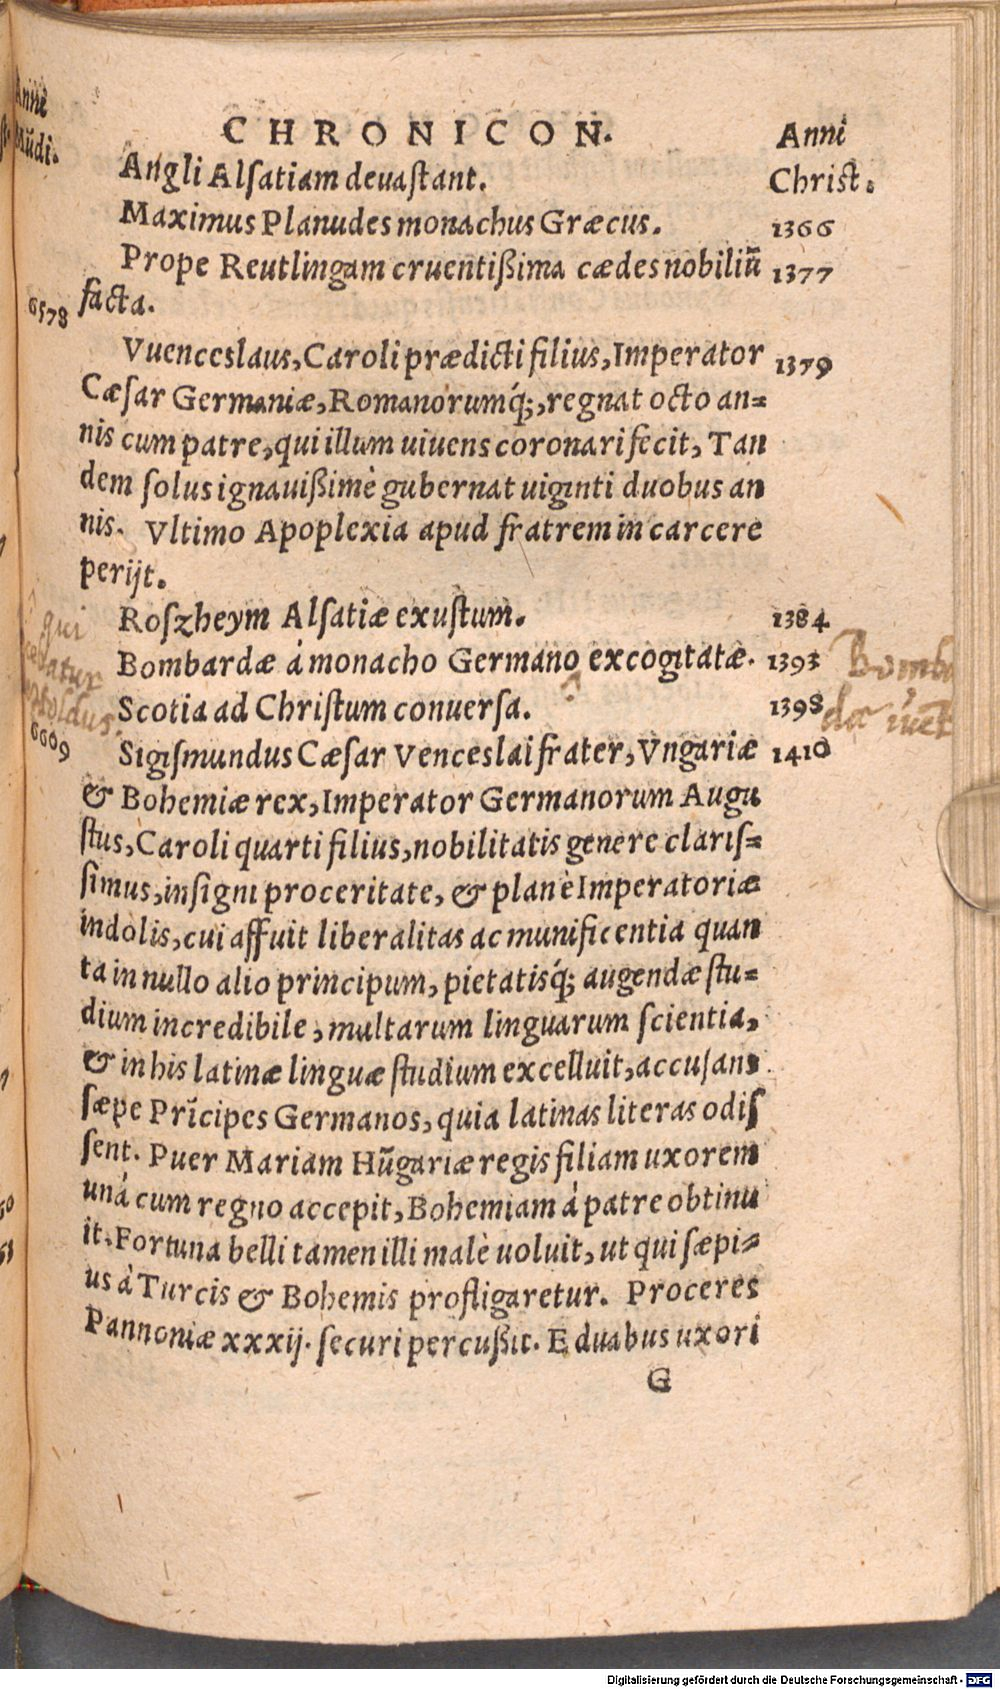 Anni
Mũdi.
CHRONICON.
Anni
Christ.
Angli Alſatiam deuaſtant.
Maximus Planudes monachus Græcus. 1366
Prope Reutlingam cruentißima cædes nobiliũ 1377
6578 facta.
Vuenceslaus, Caroli prædicti filius, Imperator 1379
Cæſar Germaniæ, Romanorumq́;, regnat octo an=
nis cum patre, qui illum uiuens coronari fecit, Tan
dem ſolus ignauißimè gubernat uiginti duobus an
nis. Vltimo Apoplexia apud fratrem in carcere
perijt.
Roſzheym Alſatiæ exuſtum. 1384
qui
Bombardæ á monacho Germano excogitatæ. 1393
Bomb
Scotia ad Chriſtum conuerſa. 1398
dæ iuet
6609
Sigiſmundus Cæſar Venceslai frater, Vngariæ 1410
& Bohemiæ rex, Imperator Germanorum Augu
ſtus, Caroli quarti filius, nobilitatis genere clariſ=
ſimus, inſigni proceritate, & planè Imperatoriæ
indolis, cui affuit liberalitas ac munificentia quan
ta in nullo alio principum, pietatisq́; augendæ ſtu=
dium incredibile, multarum linguarum ſcientia,
& in his latinæ linguæ ſtudium excelluit, accuſans
ſæpe Prĩcipes Germanos, quia latinas literas odiſ
ſent. Puer Mariam Hũgariæ regis filiam uxorem
uná cum regno accepit, Bohemiam á patre obtinu
it. Fortuna belli tamen illi malè uoluit, ut qui ſæpi=
us à Turcis & Bohemis profligaretur. Proceres
Pannoniæ xxxij. ſecuri percußit. E duabus uxori
G
Digitalisierung gefördert durch die Deutsche Forschungsgemeinschaft - DFG